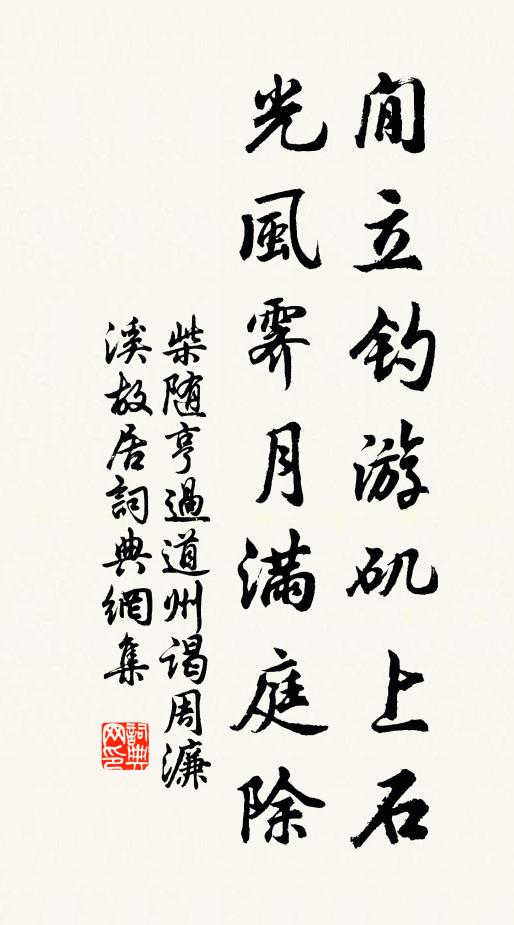 閒立钓游矶上石
光風霽月滿庭除
柴随亨過道州謁周濂
溪故居詞典網集
詞典网印